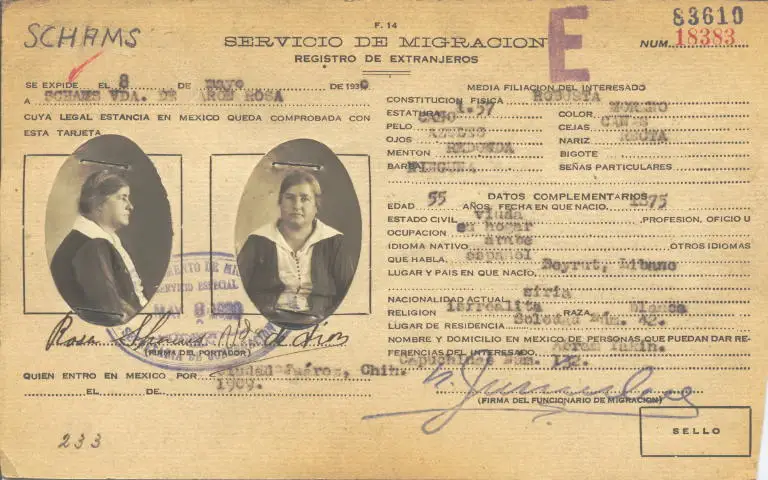 F. 14
83610
SCHAMS
E
SERVICIO DE MIGRACION
NUM. 18383
REGISTRO DE EXTRANJEROS
SE EXPIDE EL 8 DE Mayo DE 1930
A SCHAMS VDA. DE ARON ROSA
CUYA LEGAL ESTANCIA EN MEXICO QUEDA COMPROBADA CON
ESTA TARJETA
MEDIA FILIACION DEL INTERESADO
CONSTITUCION FISICA ROBUSTA
ESTATURA 1.57 COLOR MORENO
PELO CANO CEJAS CANAS
OJOS NARIZ RECTA
MENTON REDONDA BIGOTE
BARBA NINGUNA SEÑAS PARTICULARES
DATOS COMPLEMENTARIOS
EDAD 55 AÑOS, FECHA EN QUE NACIO, 1875
ESTADO CIVIL viuda PROFESION, OFICIO U
OCUPACION su hogar
IDIOMA NATIVO arabe OTROS IDIOMAS
QUE HABLA, español
LUGAR Y PAIS EN QUE NACIO, Beyrut, Libano
NACIONALIDAD ACTUAL siria
RELIGION isrrealita RAZA Blanca
LUGAR DE RESIDENCIA Soledad Núm. 42.
NOMBRE Y DOMICILIO EN MEXICO DE PERSONAS QUE PUEDAN DAR RE-
FERENCIAS DEL INTERESADO,
Capuchinas Núm. 132.
SERVICIO ESPECIAL
Rosa Schams Vda de
(FIRMA DEL PORTADOR)
QUIEN ENTRO EN MEXICO POR Ciudad Juárez, Chih.
1909.
EL DE
(FIRMA DEL FUNCIONARIO DE MIGRACION)
SELLO
233